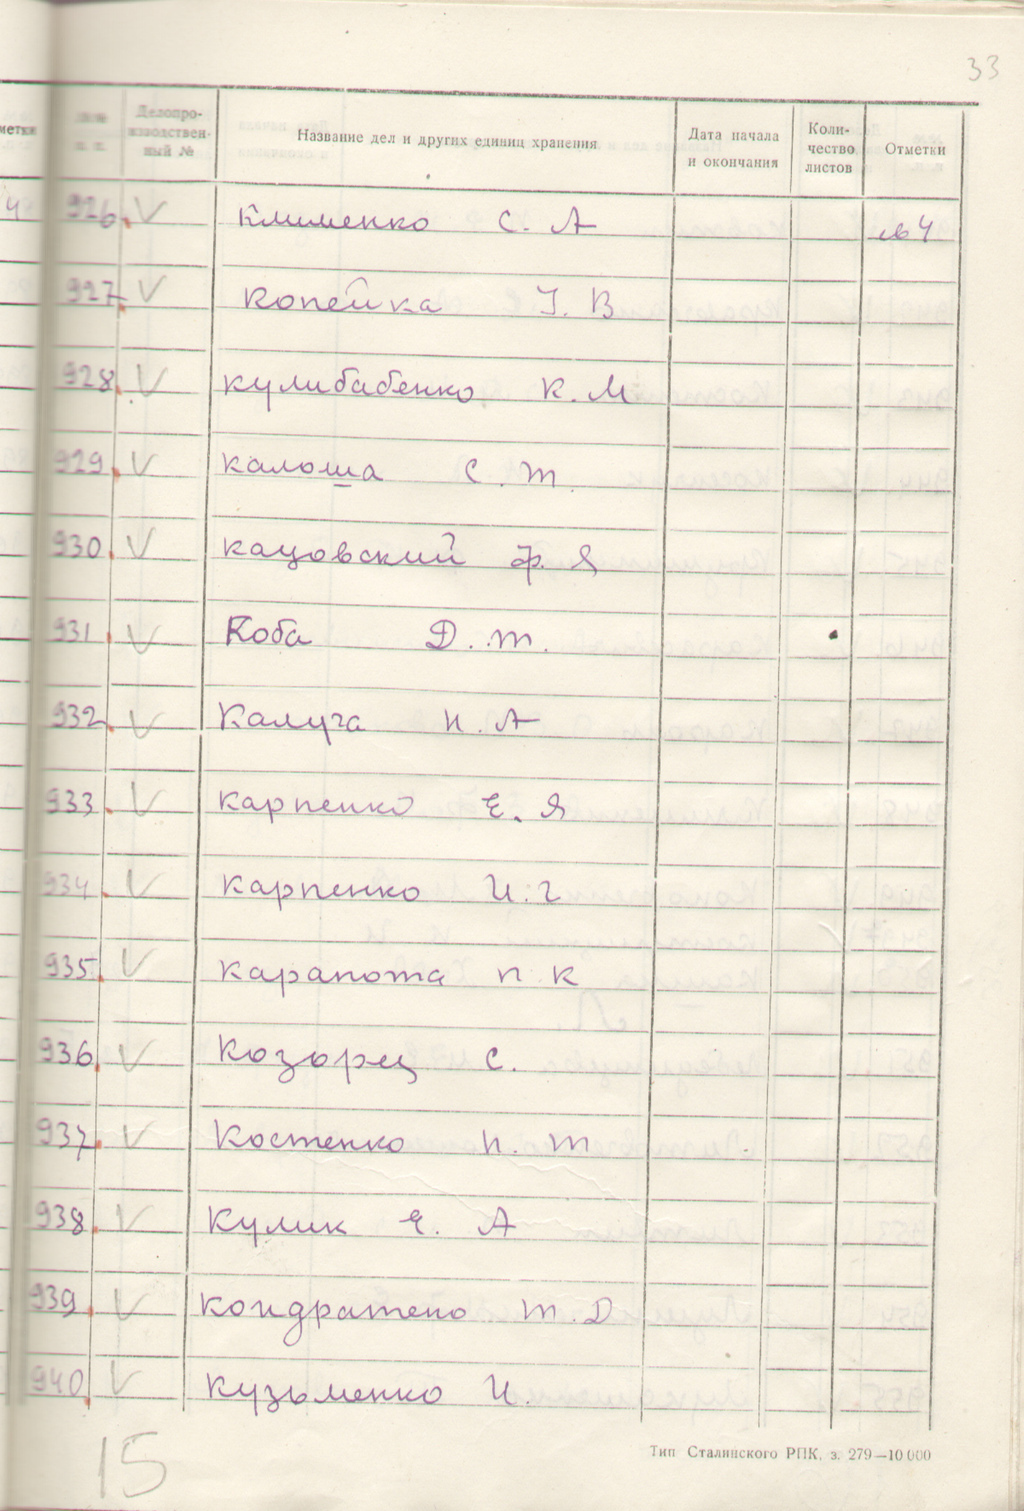 33
метки
Делопро-
изводствен-
ный №
Название дел и других единиц хранения
Дата начала
и окончания
Коли-
чество
листов
Отметки
4 926. V Клименко С. А №4
927. V Копейка І. В
928. V Кулибабенко К. М
929. V Калоша С. Т.
930. V Кацовский Ф. Я
931. V Коба Д. Т.
932. V Калуга Н. А
933. V Карпенко Е. Я
934. V Карпенко И. Г
935. V Карапота П К
936. V Козорец С.
937. V Костенко Н. Т
938. V Кулик Е. А
939. V Кондратено Т. Д
940. V Кузьменко И.
15
Тип Сталинского РПК, з. 279—10 000